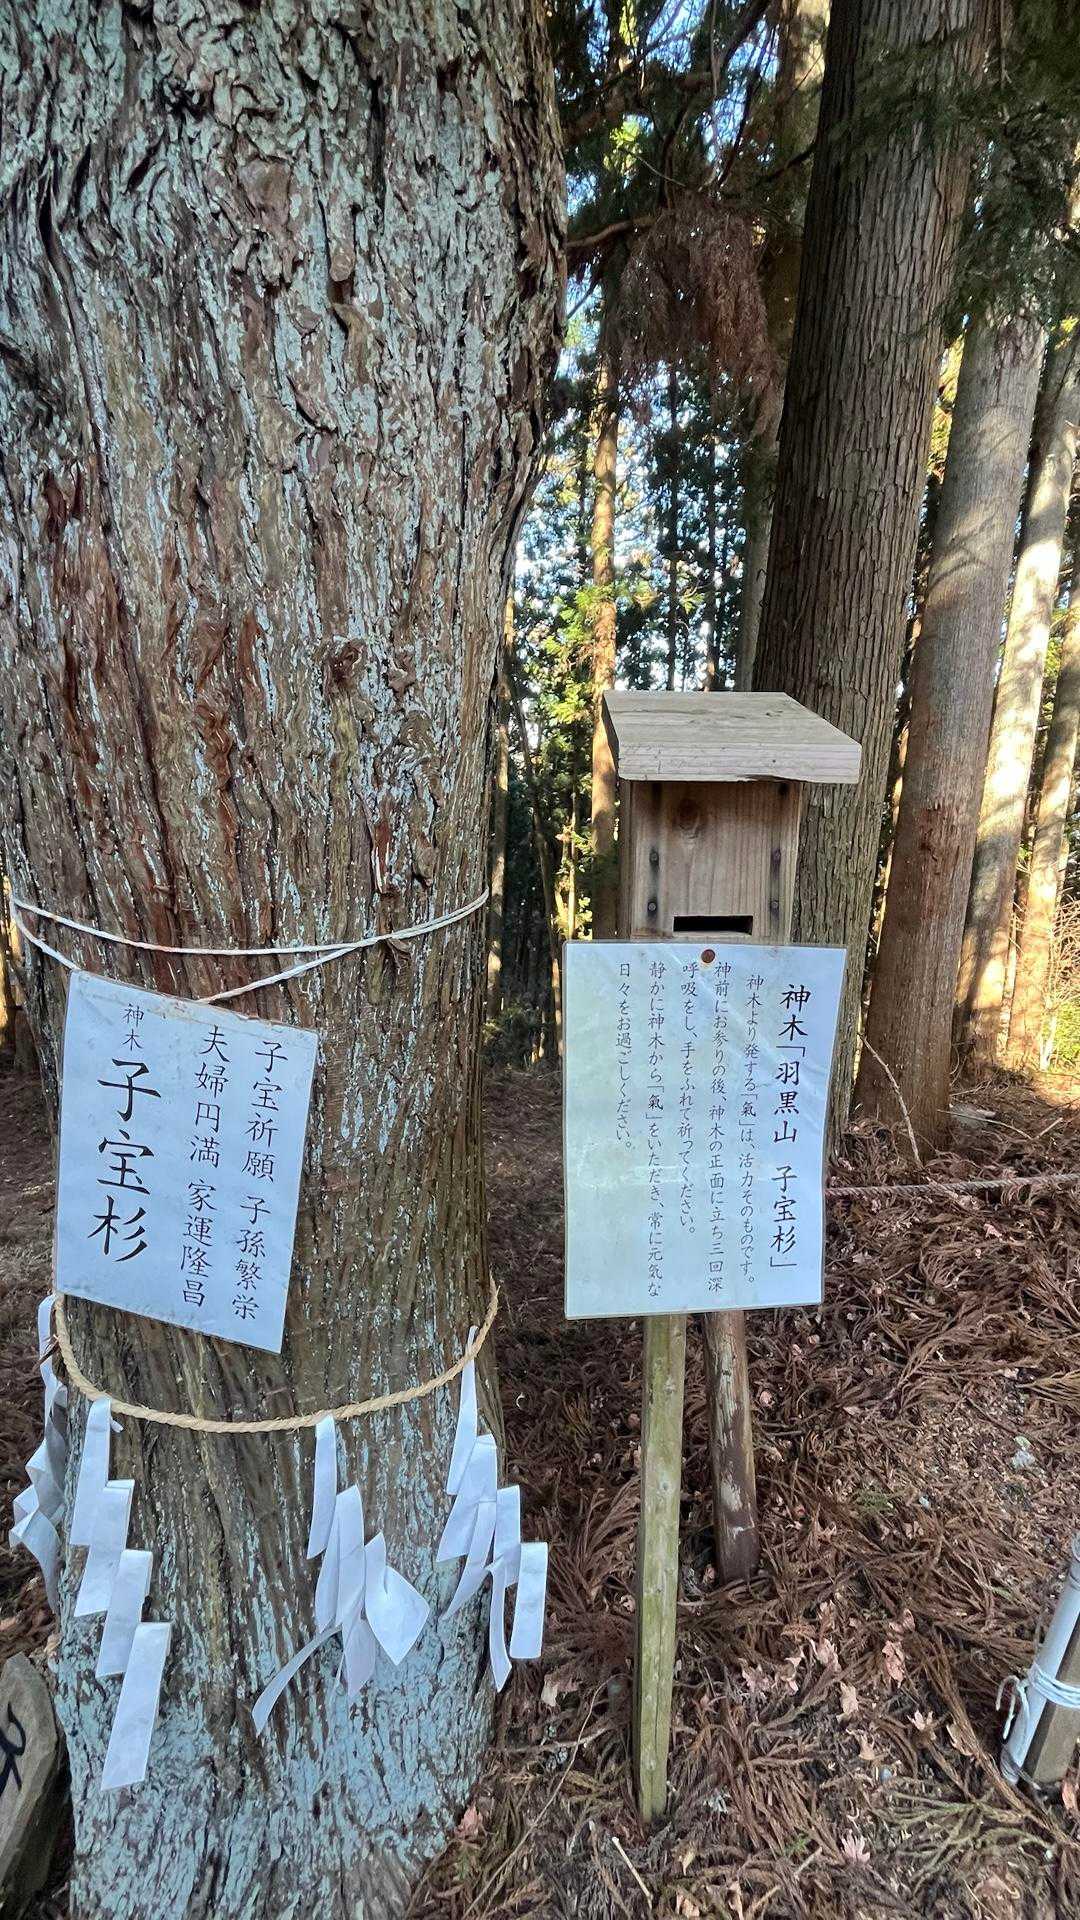 子宝祈願 子孫繁栄
夫婦円満 家運隆昌
神木 子宝杉
神木「羽黒山 子宝杉」
神木より発する「氣」は、活力そのものです。
神前にお参りの後、神木の正面に立ち三回深
呼吸をし、手をふれて祈ってください。
静かに神木から「氣」をいただき、常に元気な
日々をお過ごしください。